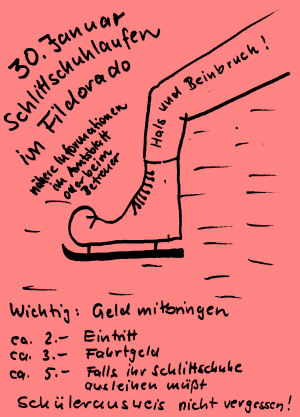 30. Januar
Schlittschuhlaufen
im Fildorado
nähere Informationen
im Amtsblatt
oder beim
Betreuer
Hals und Beinbruch!
Wichtig: Geld mitbringen
ca. 2.- Eintritt
ca. 3.- Fahrtgeld
ca. 5.- Falls ihr Schlittschuhe
ausleihen müßt
Schülerausweis nicht vergessen!